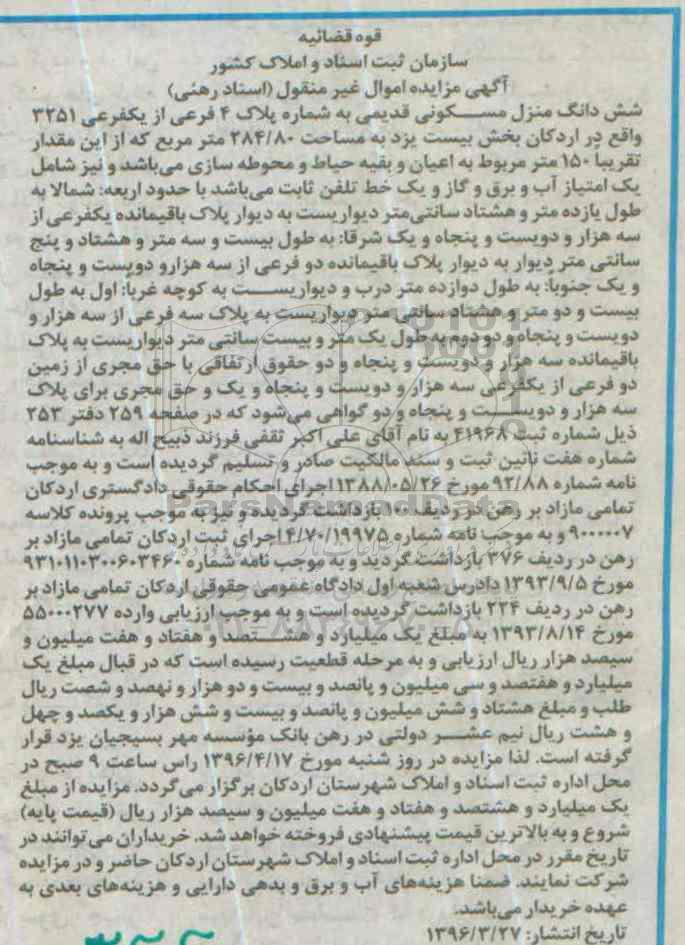 قوه قضائیه
سازمان ثبت اسناد و املاک کشور
آگهی مزایده اموال غیر منقول (اسناد رهنی)
شش دانگ منزل مسکونی قدیمی به شماره پلاک ۴ فرعی از یکفرعی ۳۲۵۱
واقع در اردکان بخش بیست یزد به مساحت ۲۸۴/۸۰ متر مربع که از این مقدار
تقریبا ۱۵۰ متر مربوط به اعیان و بقیه حیاط و محوطه سازی می‌باشد و نیز شامل
یک امتیاز آب و برق و گاز و یک خط تلفن ثابت می‌باشد با حدود اربعه: شمالا به
طول یازده متر و هشتاد سانتی‌متر دیواریست به دیوار پلاک باقیمانده یکفرعی از
سه هزار و دویست و پنجاه و یک شرقا: به طول بیست و سه متر و هشتاد و پنج
سانتی متر دیوار به دیوار پلاک باقیمانده دو فرعی از سه هزارو دویست و پنجاه
و یک جنوباً: به طول دوازده متر درب و دیواریست به کوچه غربا: اول به طول
بیست و دو متر و هشتاد سانتی متر دیواریست به پلاک سه فرعی از سه هزار و
دویست و پنجاه و دو دوم به طول یک متر و بیست سانتی متر دیواریست به پلاک
باقیمانده سه هزار و دویست و پنجاه و دو حقوق ارتفاقی با حق مجری از زمین
دو فرعی از یکفرعی سه هزار و دویست و پنجاه و یک و حق مجری برای پلاک
سه هزار و دویست و پنجاه و دو گواهی می‌شود که در صفحه ۲۵۹ دفتر ۲۵۳
ذیل شماره ثبت ۴۱۹۶۸ به نام آقای علی اکبر ثقفی فرزند ذبیح اله به شناسنامه
شماره هفت نائین ثبت و سند مالکیت صادر و تسلیم گردیده است و به موجب
نامه شماره ۹۲/۸۸ مورخ ۱۳۸۸/۰۵/۲۶ اجرای احکام حقوقی دادگستری اردکان
تمامی مازاد بر رهن در ردیف ۱۰۰ بازداشت گردیده و نیز به موجب پرونده کلاسه
۹۰۰۰۰۰۷ و به موجب نامه شماره ۴/۷۰/۱۹۹۷۵ اجرای ثبت اردکان تمامی مازاد بر
رهن در ردیف ۳۷۶ بازداشت گردید و به موجب نامه شماره ۹۳۱۰۱۱۰۳۰۰۶۰۳۴۶۰
مورخ ۱۳۹۳/۹/۵ دادرس شعبه اول دادگاه عمومی حقوقی اردکان تمامی مازاد بر
رهن در ردیف ۲۲۴ بازداشت گردیده است و به موجب ارزیابی وارده ۵۵۰۰۰۲۷۷
مورخ ۱۳۹۳/۸/۱۴ به مبلغ یک میلیارد و هشتصد و هفتاد و هفت میلیون و
سیصد هزار ریال ارزیابی و به مرحله قطعیت رسیده است که در قبال مبلغ یک
میلیارد و هفتصد و سی میلیون و پانصد و بیست و دو هزار و نهصد و شصت ریال
طلب و مبلغ هشتاد و شش میلیون و پانصد و بیست و شش هزار و یکصد و چهل
و هشت ریال نیم عشر دولتی در رهن بانک مؤسسه مهر بسیجیان یزد قرار
گرفته است. لذا مزایده در روز شنبه مورخ ۱۳۹۶/۴/۱۷ راس ساعت ۹ صبح در
محل اداره ثبت اسناد و املاک شهرستان اردکان برگزار می‌گردد. مزایده از مبلغ
یک میلیارد و هشتصد و هفتاد و هفت میلیون و سیصد هزار ریال (قیمت پایه)
شروع و به بالاترین قیمت پیشنهادی فروخته خواهد شد. خریداران می‌توانند در
تاریخ مقرر در محل اداره ثبت اسناد و املاک شهرستان اردکان حاضر و در مزایده
شرکت نمایند. ضمنا هزینه‌های آب و برق و بدهی دارایی و هزینه‌های بعدی به
عهده خریدار می‌باشد.
تاریخ انتشار: ۱۳۹۶/۳/۲۷
ParsNamadData